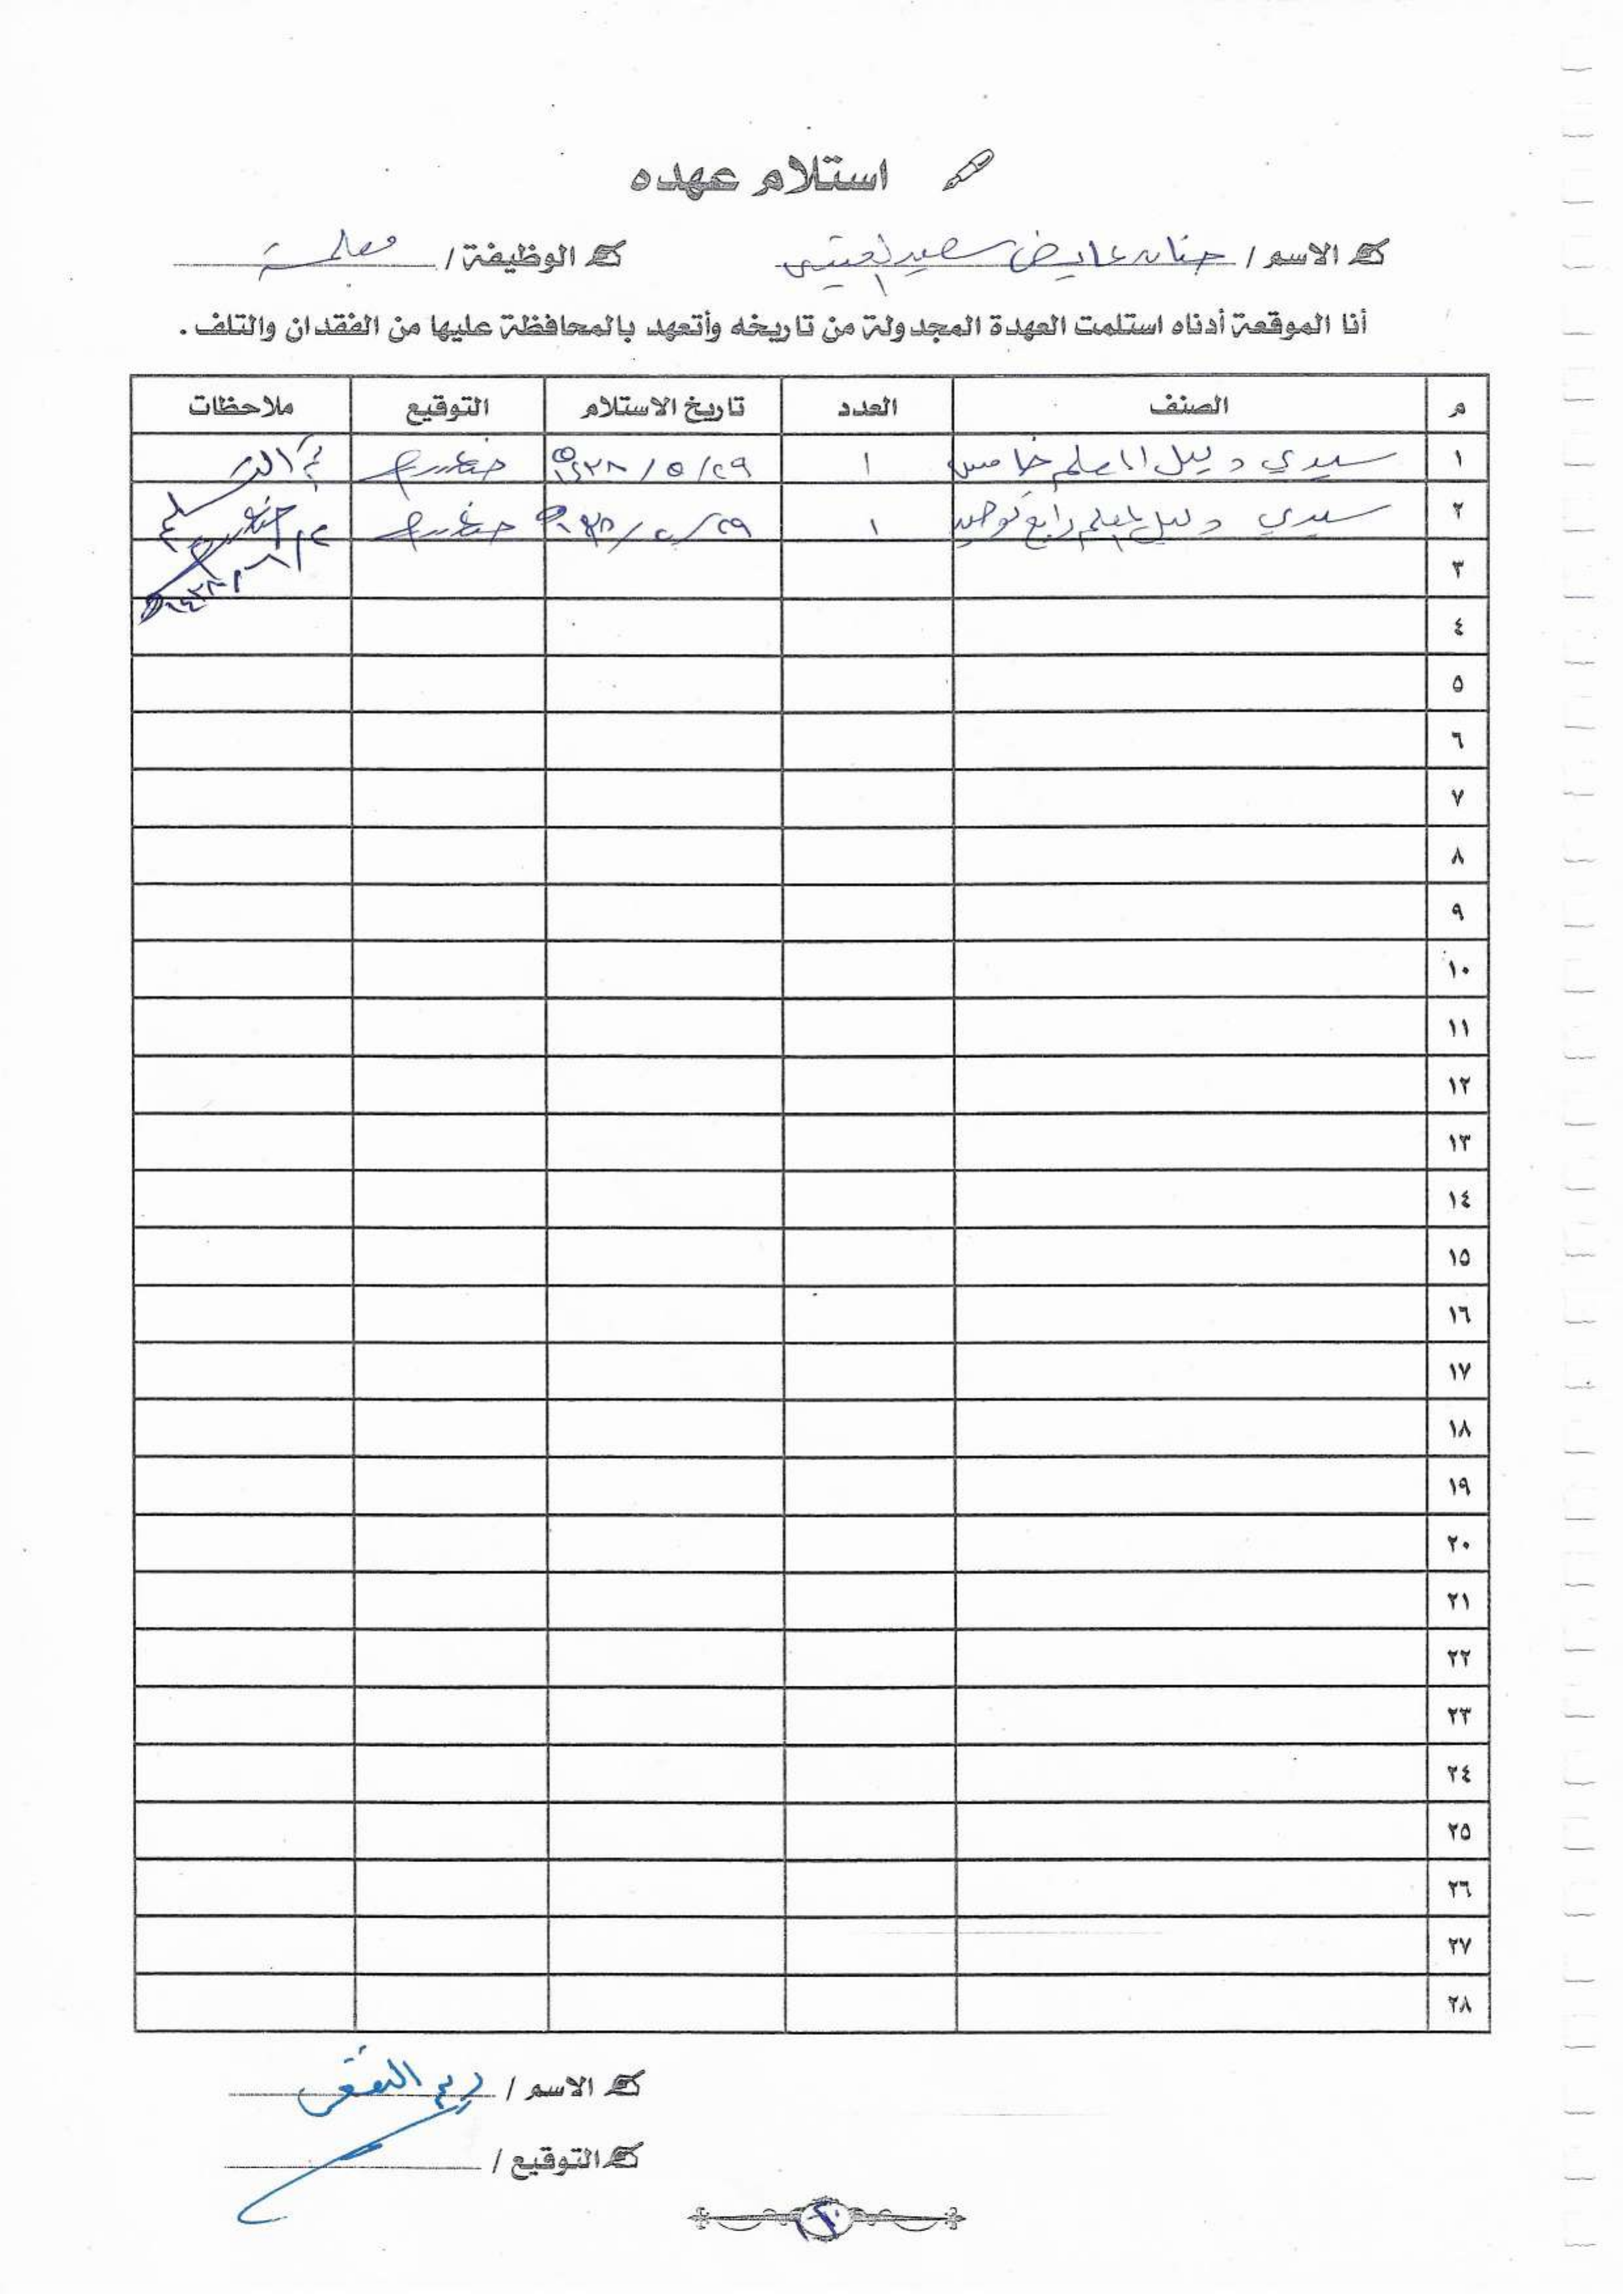 استلام عهده
الاسم / حنان عايض سعيد العتيبي الوظيفة / معلمة
أنا الموقعة أدناه استلمت العهدة المجدولة من تاريخه وأتعهد بالمحافظة عليها من الفقدان والتلف .
م الصنف العدد تاريخ الاستلام التوقيع ملاحظات
١ سيدي دليل المعلم خامس ١ ٢٩/ ٥ / ١٤٣٨هـ تم التسليم
٢ سيدي دليل المعلم رابع توحيد ١
٣
٤
٥
٦
٧
٨
٩
١٠
١١
١٢
١٣
١٤
١٥
١٦
١٧
١٨
١٩
٢٠
٢١
٢٢
٢٣
٢٤
٢٥
٢٦
٢٧
٢٨
الاسم / ريم
التوقيع /